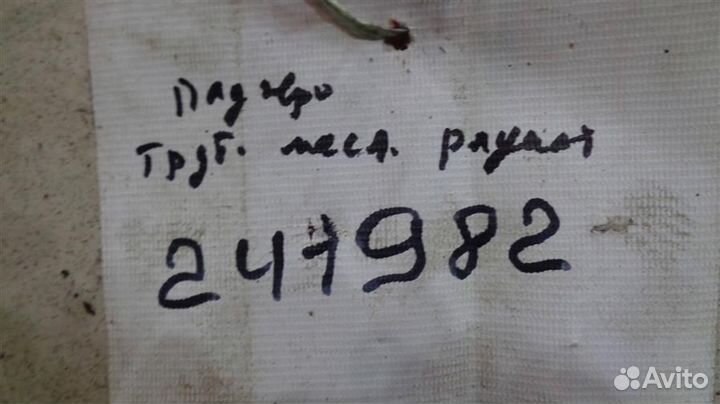 Паджеро
труб. масл.
247982
Avito